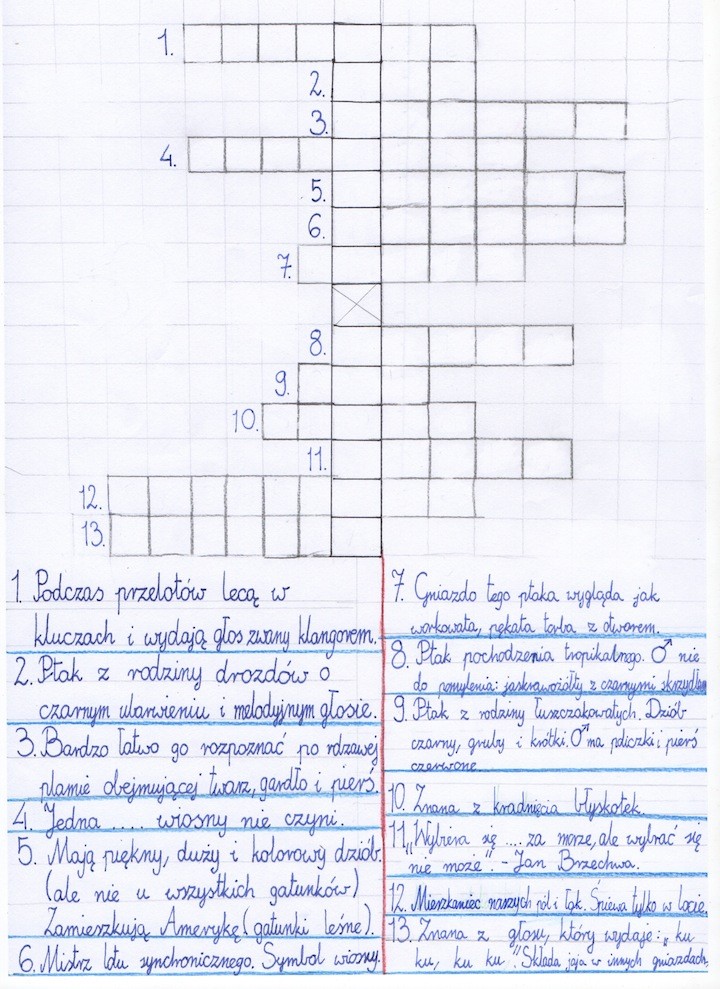 1.
2.
3.
4.
5.
6.
7.
8.
9.
10.
11.
12.
13.
1. Podczas przelotów lecą w
kluczach i wydają głos zwany klangorem.
2. Ptak z rodziny drozdów o
czarnym ubarwieniu i melodyjnym głosie.
3. Bardzo łatwo go rozpoznać po rdzawej
plamie obejmującej twarz, gardło i pierś.
4. Jedna ..... wiosny nie czyni.
5. Mają piękny, duży i kolorowy dziób.
(ale nie u wszystkich gatunków)
Zamieszkują Amerykę (gatunki leśne).
6. Mistrz lotu synchronicznego. Symbol wiosny.
7. Gniazdo tego ptaka wygląda jak
workowata, pękata torba z otworem.
8. Ptak pochodzenia tropikalnego. ♂ nie
do pomylenia: jaskrawożółty z czarnymi skrzydłami
9. Ptak z rodziny łuszczakowatych. Dziób
czarny, gruby i krótki. ♂ ma policzki i pierś
czerwone.
10. Znana z kradnięcia błyskotek.
11. "Wybiera się .... za morze, ale wybrać się
nie może". - Jan Brzechwa.
12. Mieszkaniec naszych pól i łąk. Śpiewa tylko w locie.
13. Znana z głosu, który wydaje: "ku
ku, ku ku". Składa jaja w innych gniazdach.